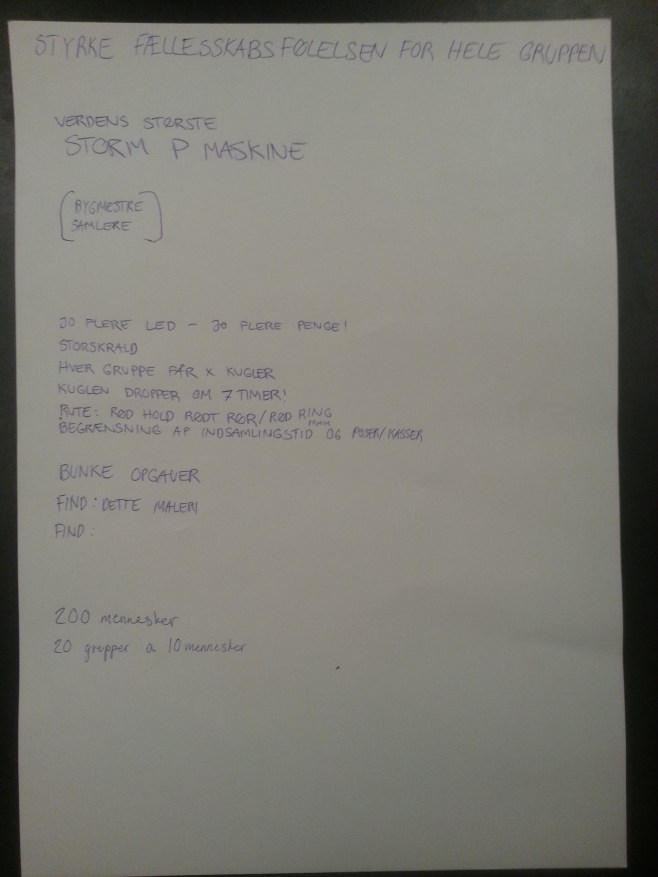 STYRKE FÆLLESSKABSFØLELSEN FOR HELE GRUPPEN
VERDENS STØRSTE
STORM P MASKINE
[BYGMESTRE
SAMLERE]
JO FLERE LED - JO FLERE PENGE!
STORSKRALD
HVER GRUPPE FÅR X KUGLER
KUGLEN DROPPER OM 7 TIMER!
RUTE: RØD HOLD RØDT RØR/RØD RING
BEGRÆNSNING AF INDSAMLINGSTID OG POSER/KASSER
BUNKE OPGAVER
FIND: DETTE MALERI
FIND:
200 mennesker
20 grupper a 10 mennesker